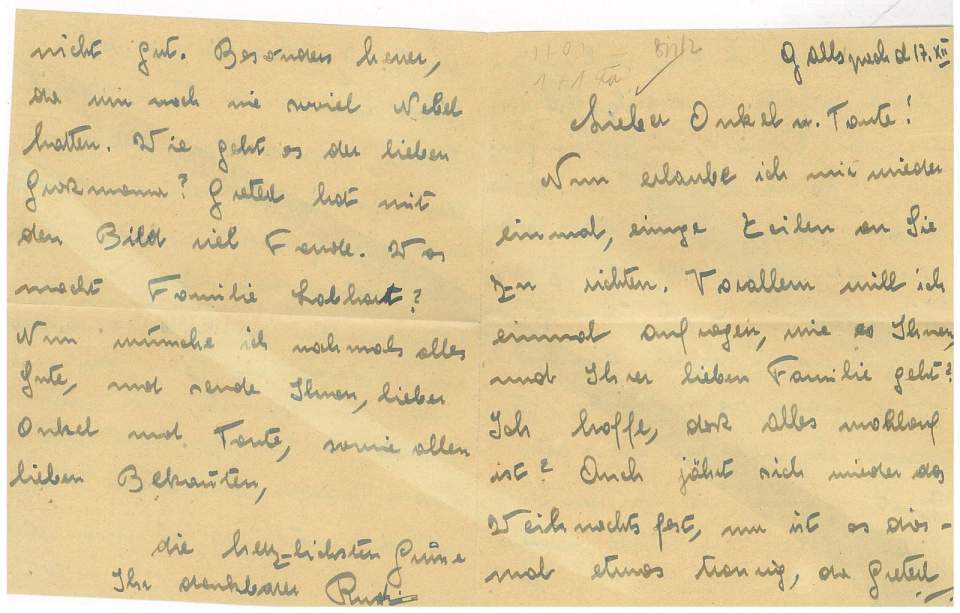 Gallspach d 17. XII
Lieber Onkel u. Tante!
Nun erlaube ich mir wieder
einmal, einige Zeilen an Sie
zu richten. Vorallem will ich
einmal anfragen, wie es Ihnen,
und Ihrer lieben Familie geht?
Ich hoffe, dass alles wohlauf
ist? Auch jährt sich wieder das
Weihnachtsfest, nur ist es dies-
mal etwas traurig, da Greterl
nicht gut. Besonders heuer,
da wir noch nie soviel Nebel
hatten. Wie geht es der lieben
Grossmama? Greterl hat mit
den Bild viel Freude. Was
macht Familie
Nun wünsche ich nochmals alles
Gute, und sende Ihnen, lieber
Onkel und Tante, sowie allen
lieben Bekannten,
die herz-lichsten Grüsse
Ihr dankbarer Rudi